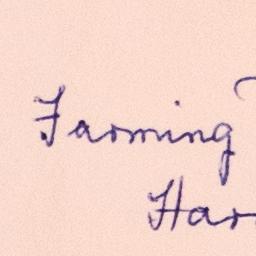 Farming
Har